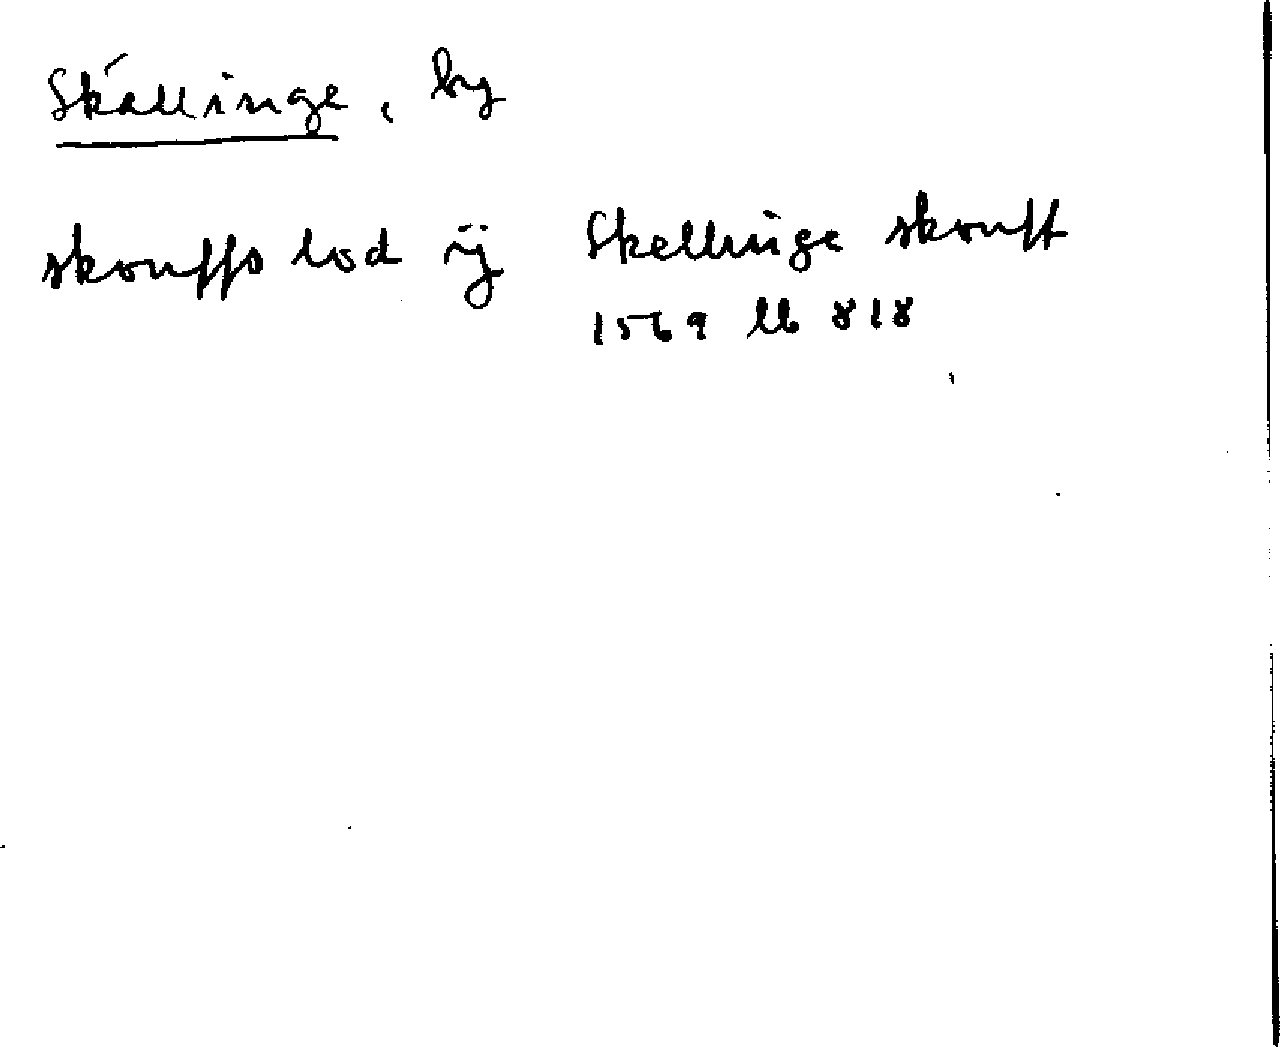 Skällinge, by
skouffs lod ij Skellinge skouff
1569 lb 818